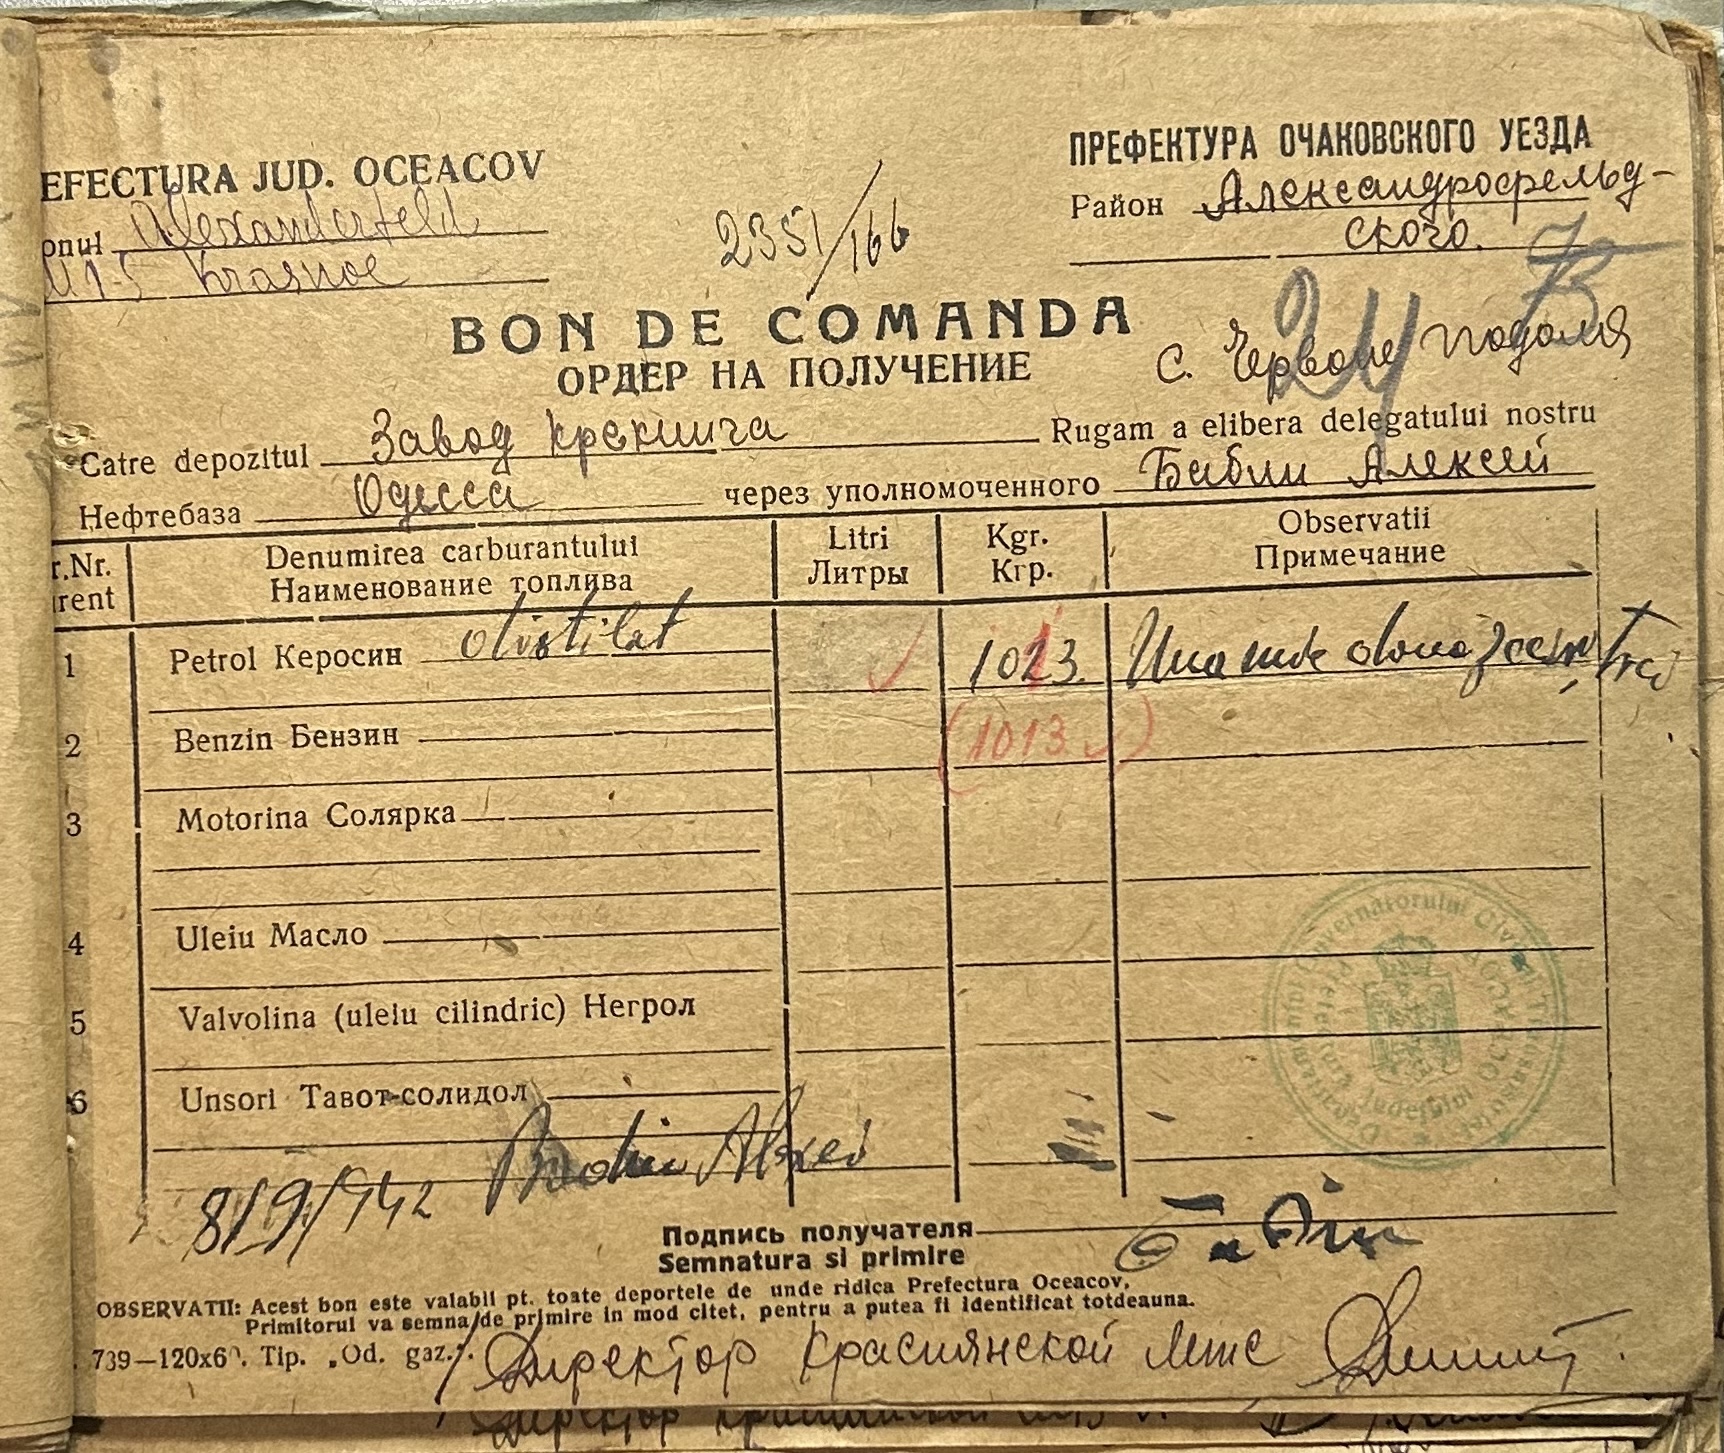 EFECTURA JUD. OCEACOV
ПРЕФЕКТУРА ОЧАКОВСКОГО УЕЗДА
onul Alexanderfeld
Район Александрофельд-
ского.
Krasnoe
2351/166
73
24
BON DE COMANDA
ОРДЕР НА ПОЛУЧЕНИЕ
с. Червоне Подолля
Catre depozitul Завод крекинга Rugam a elibera delegatului nostru
Нефтебаза Одесса через уполномоченного Бабин Алексей
r.Nr.
rent
Denumirea carburantului
Наименование топлива
Litri
Литры
Kgr.
Кгр.
Observatii
Примечание
1 Petrol Керосин distilat 1023. Una mie doua zeci si trei
2 Benzin Бензин (1013)
3 Motorina Солярка
4 Uleiu Масло
5 Valvolina (uleiu cilindric) Негрол
6 Unsori Тавот-солидол
8/9/942
Подпись получателя
Semnatura si primire
OBSERVATII: Acest bon este valabil pt. toate deportele de unde ridica Prefectura Oceacov,
Primitorul va semna de primire in mod citet, pentru a putea fi identificat totdeauna.
739—120x6 Tip. „Od. gaz.".
Директор Краснянской мтс